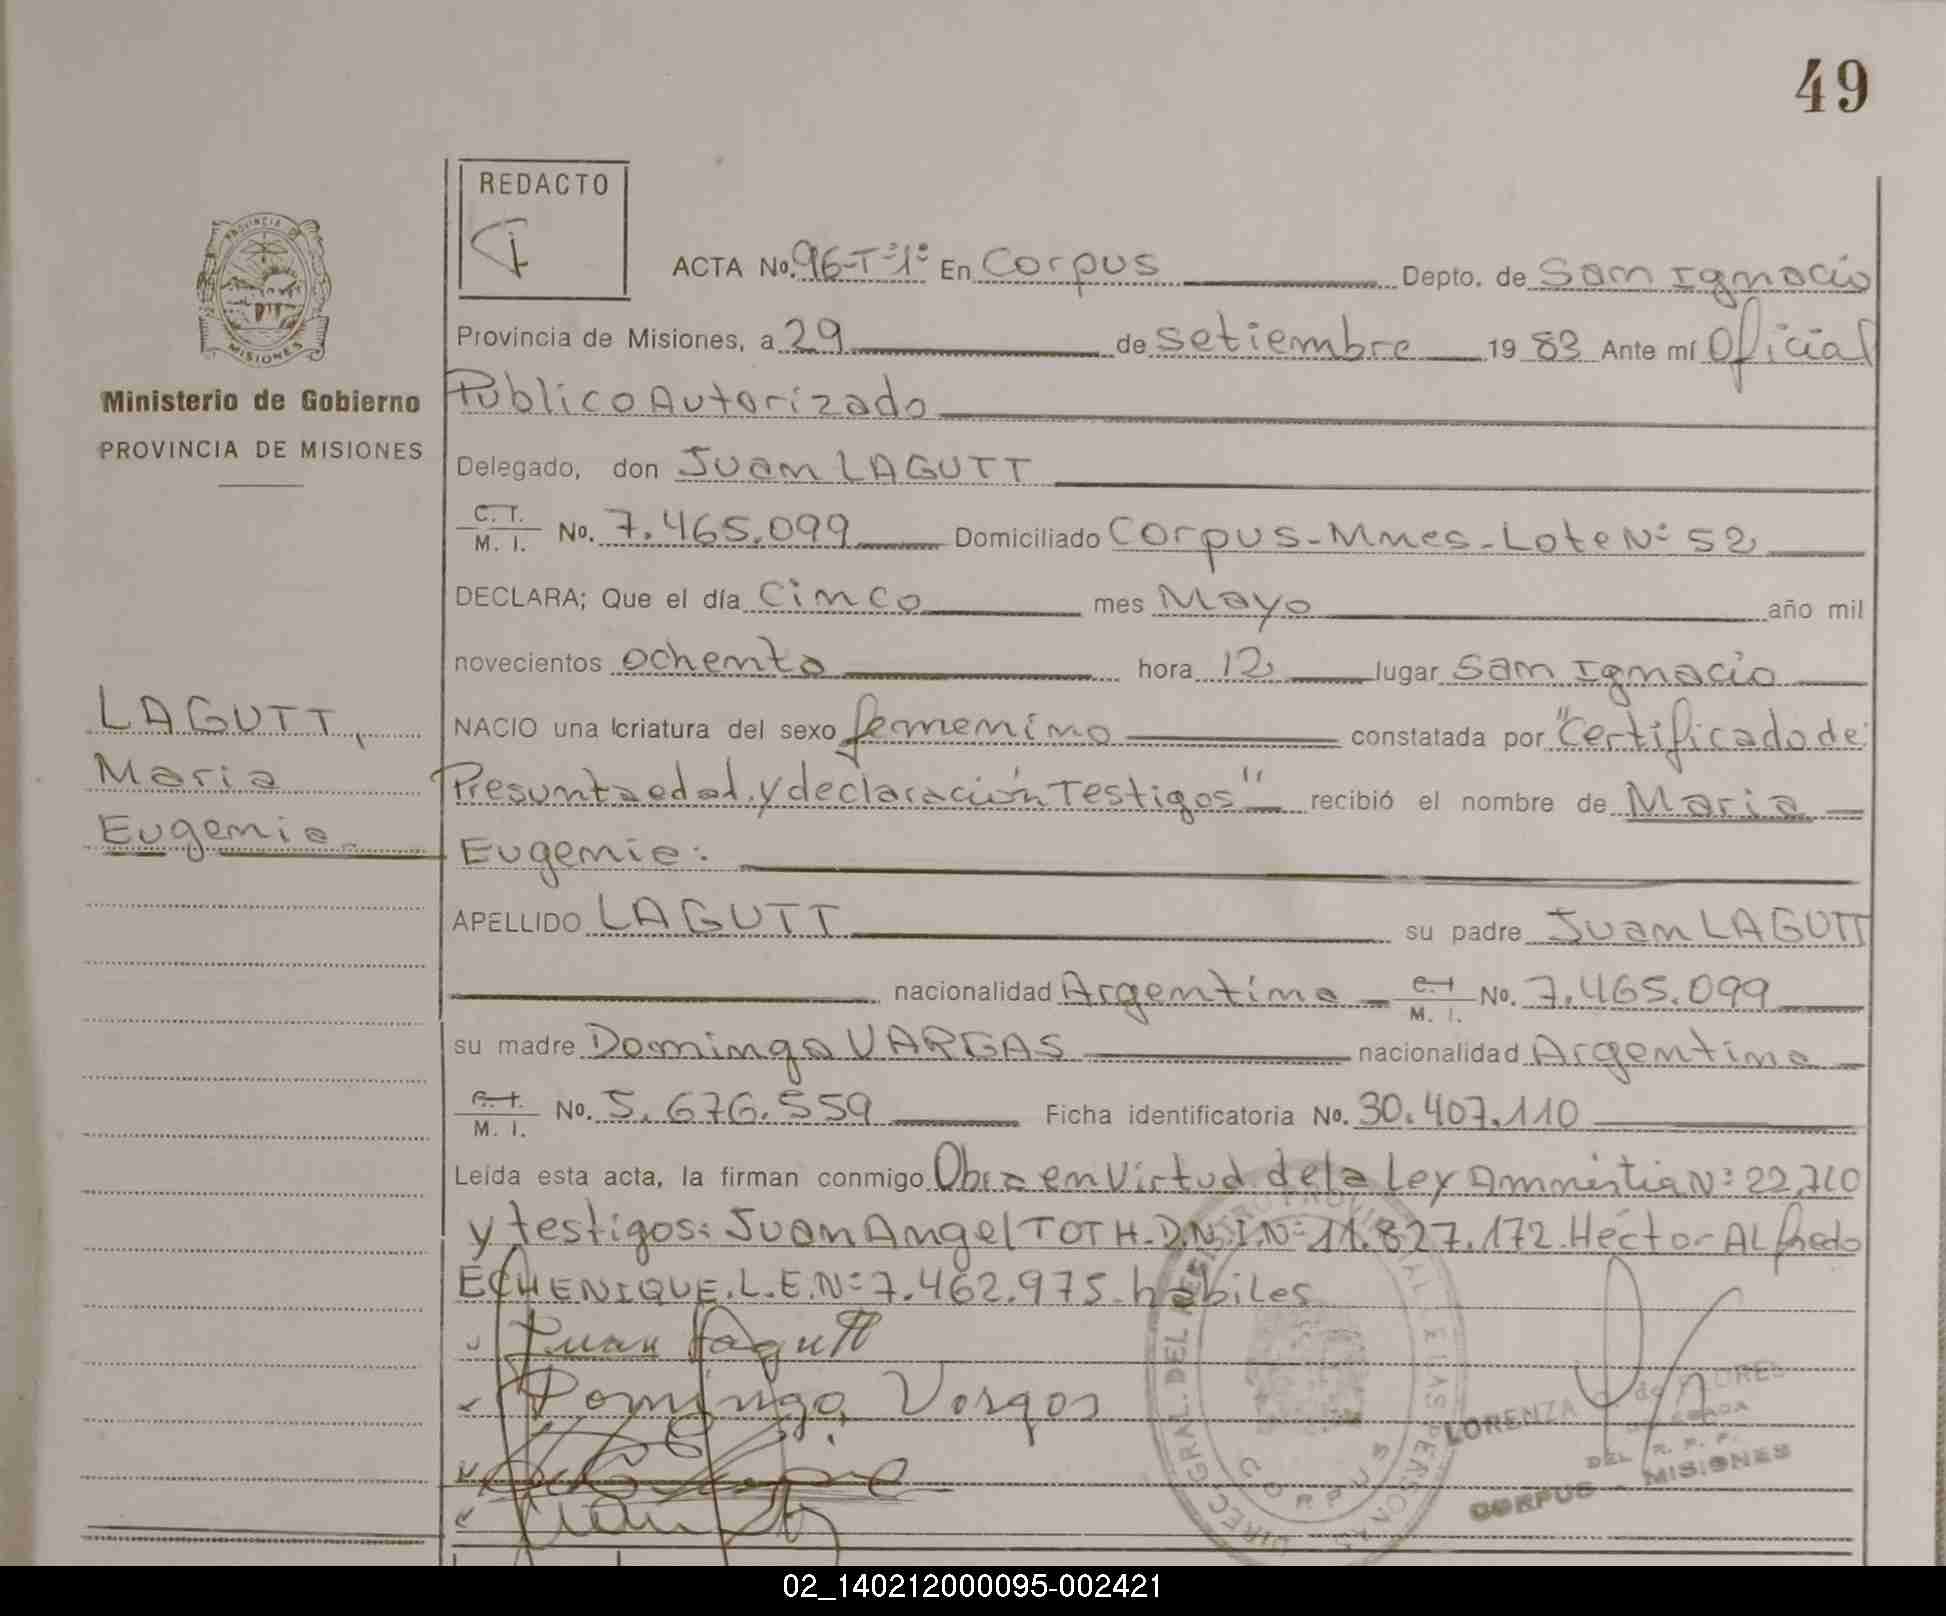 49
REDACTO
PROVINCIA DE
MISIONES
Ministerio de Gobierno
PROVINCIA DE MISIONES
LAGUTT,
Maria
Eugenia.
ACTA No. 96-T-1º En Corpus Depto. de San Ignacio
Provincia de Misiones, a 29 de setiembre 19 83 Ante mí Oficial
Publico Autorizado
Delegado, don Juan LAGUTT
C. I.
M. I. No. 7.465.099 Domiciliado Corpus-Mnes-Lote Nº 52
DECLARA; Que el día Cinco mes Mayo año mil
novecientos ochenta hora 12 lugar San Ignacio
NACIO una criatura del sexo femenino constatada por "Certificado de
Presunta edad, y declaración Testigos" recibió el nombre de Maria
Eugenia.
APELLIDO LAGUTT su padre Juan LAGUTT
nacionalidad Argentina C. I.
M. I. No. 7.465.099
su madre Dominga VARGAS nacionalidad Argentina
C. I.
M. I. No. 5.676.559 Ficha identificatoria No. 30.407.110
Leída esta acta, la firman conmigo Obra en Virtud de la Ley Amnistia Nº 22.710
y testigos: Juan Angel TOTH-D.N.I.Nº 11.827.172-Héctor ALfredo
ECHENIQUE.L.E.Nº 7.462.975-habiles
Juan Lagutt
Dominga Vargas
CORPUS
LORENZA de FLORES
DEL R. P. P.
CORPUS - MISIONES
02_140212000095-002421